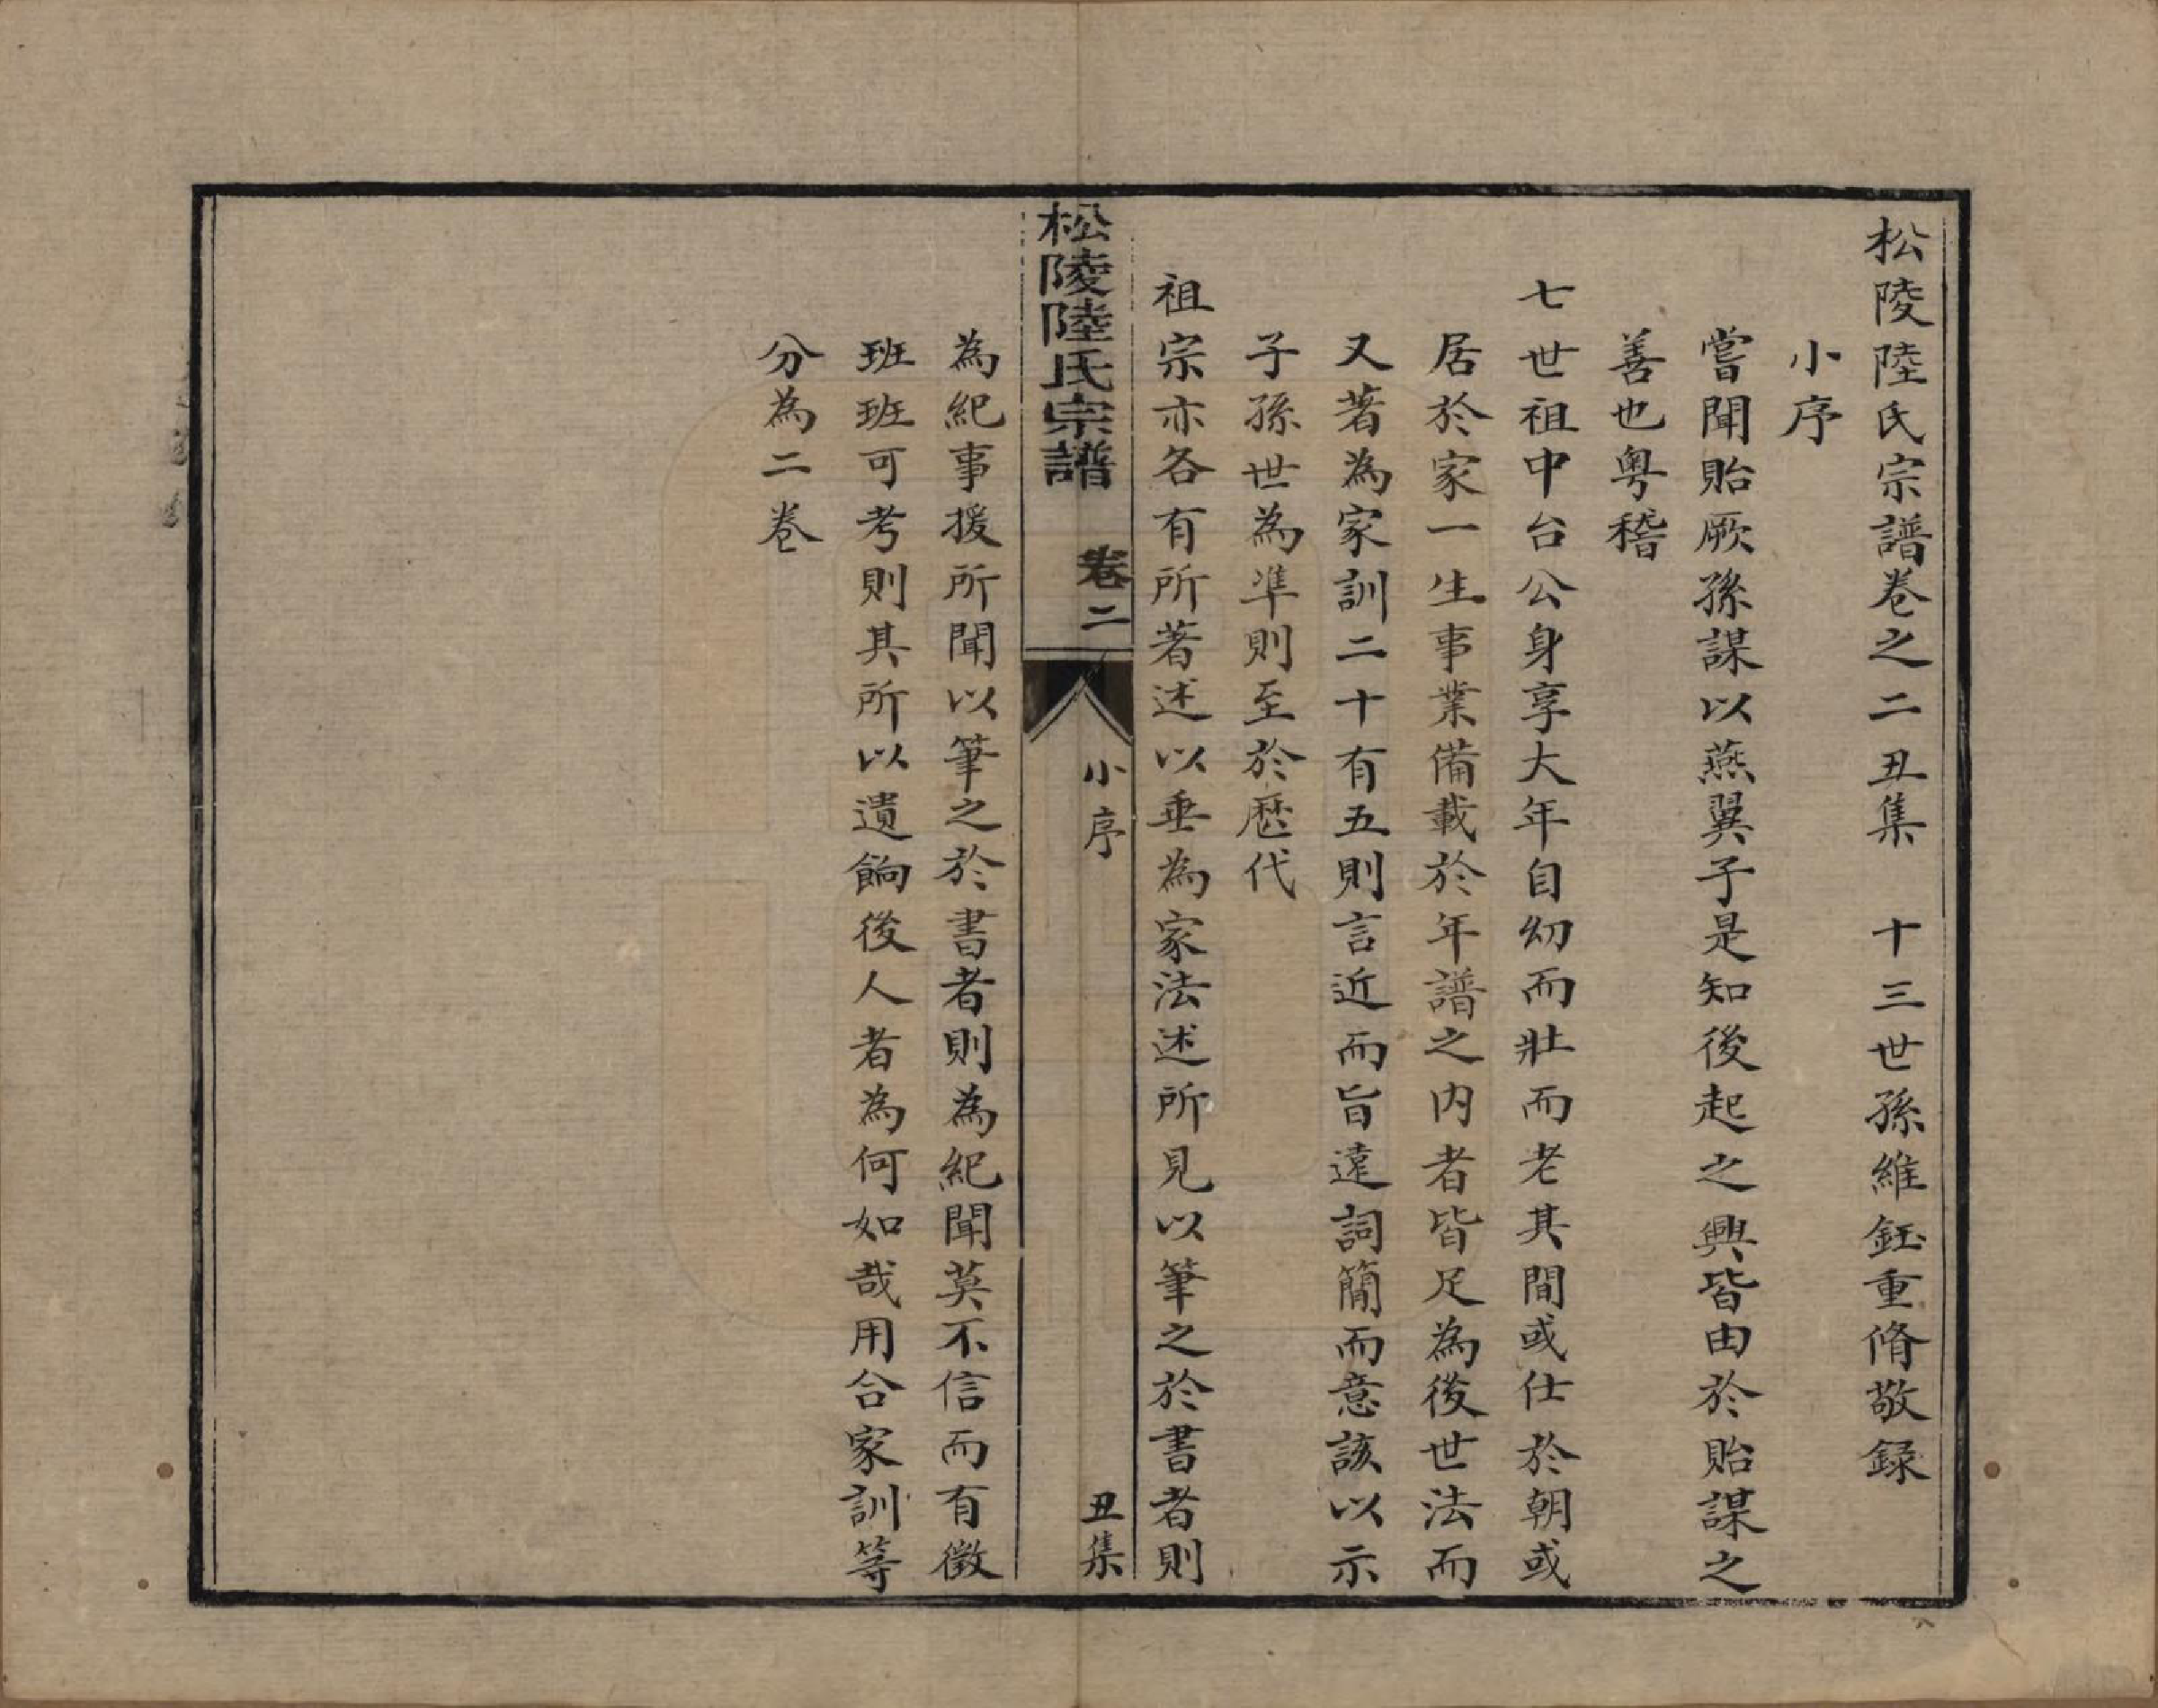 松陵陸氏宗譜卷之二丑集　十三世孫維鈺重脩敬録
小序
嘗聞貽厥孫謀以燕翼子是知後起之興皆由於貽謀之
善也粤稽
七世祖中台公身享大年自幼而壯而老其間或仕於朝或
居於家一生事業備載於年譜之内者皆足為後世法而
又著為家訓二十有五則言近而旨遠詞簡而意該以示
子孫世為準則至於歷代
祖宗亦各有所著述以垂為家法述所見以筆之於書者則
松陵陸氏宗譜　卷二　小序　丑集
為紀事援所聞以筆之於書者則為紀聞莫不信而有徵
班班可考則其所以遺餉後人者為何如哉用合家訓等
分為二卷